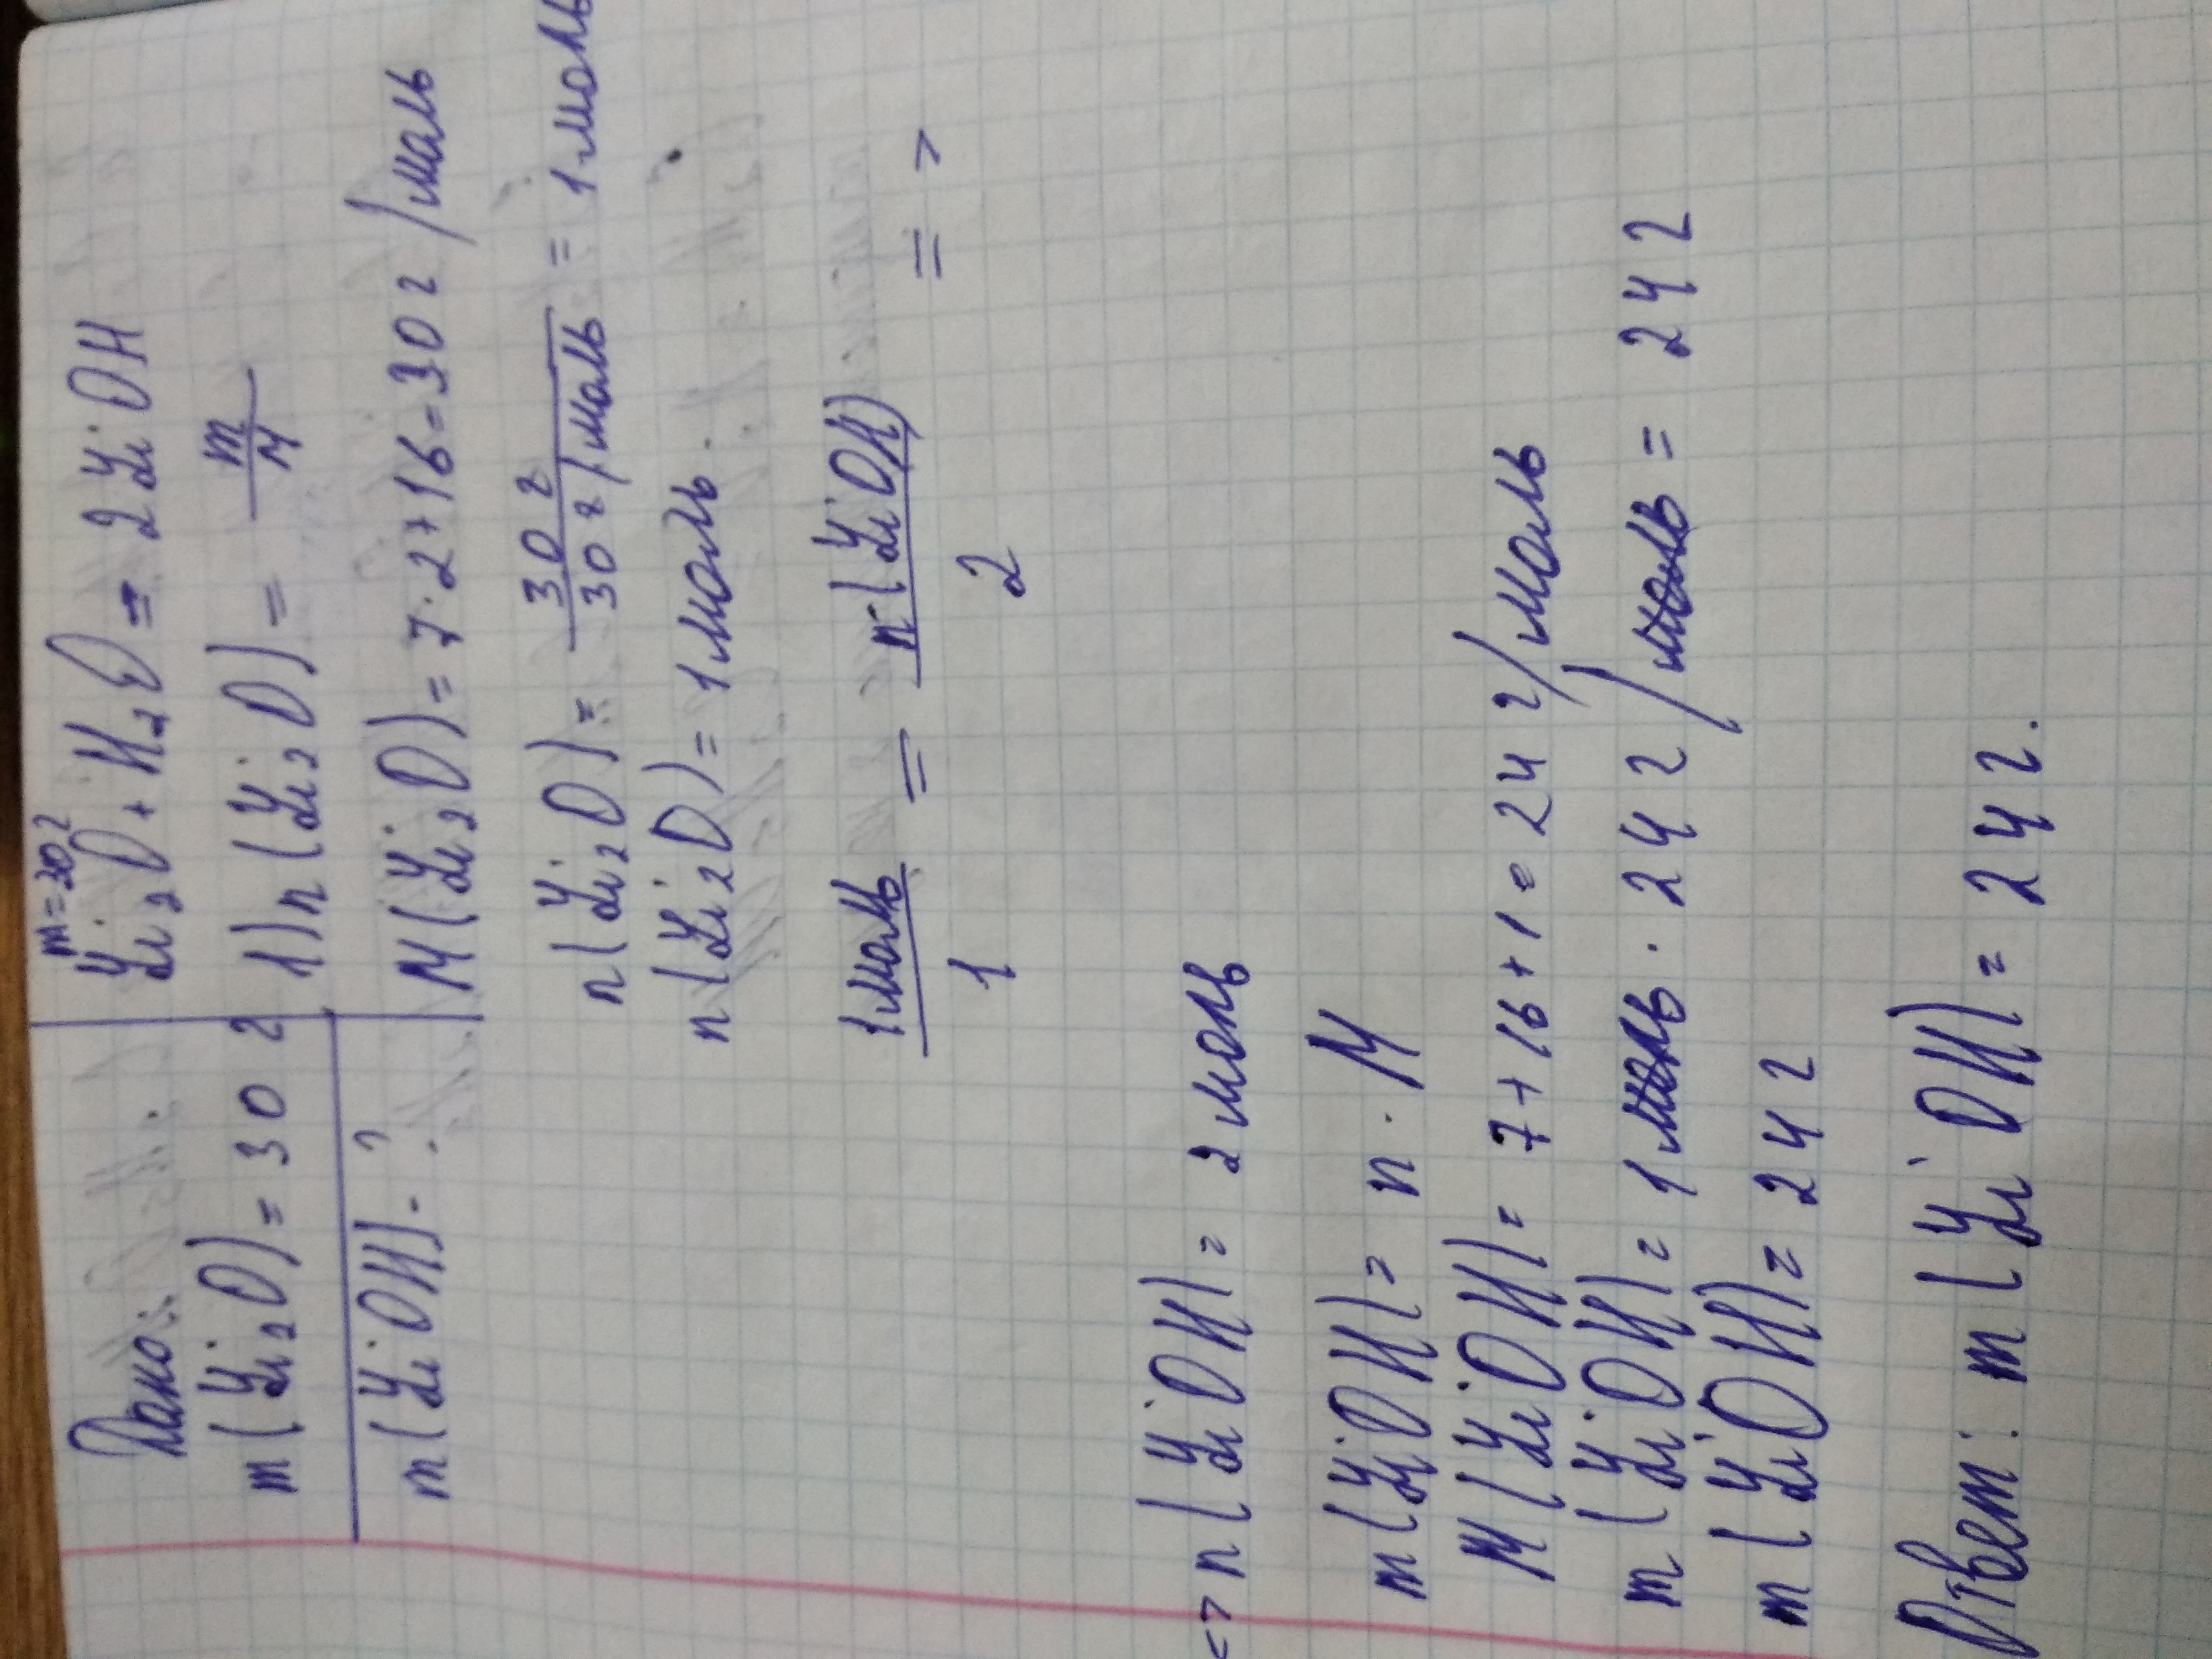 Дано:
m(Li₂O)=30 г
m(LiOH)-?
m=30г
Li₂O+H₂O=2LiOH
1)n(Li₂O)= m/M
M(Li₂O)=7·2+16=30 г/моль
n(Li₂O)= 30 г / 30 г/моль = 1 моль
n(Li₂O)=1 моль.
1 моль / 1 = n(LiOH) / 2 =>
=> n(LiOH)= 2 моль
m(LiOH)= n·M
M(LiOH)= 7+16+1=24 г/моль
m(LiOH)= 1 моль·24 г/моль= 24 г
m(LiOH)= 24 г
Ответ: m(LiOH)= 24 г.